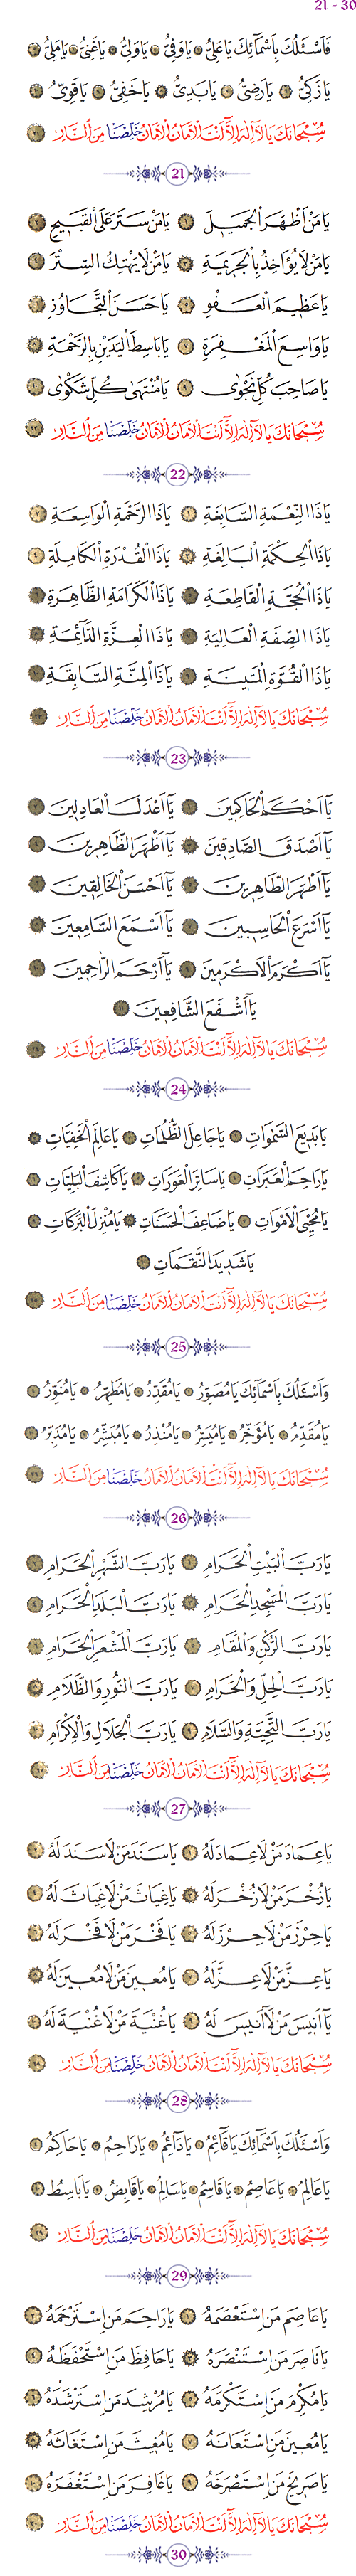 21 - 30
فَاَسْئَلُكَ بِاَسْمَآئِكَ يَا عَلِىُّ ۞ يَا وَفِىُّ ۞ يَا وَلِىُّ ۞ يَا غَنِىُّ ۞ يَا مَلِىُّ ۞
يَا زَكِىُّ ۞ يَا رَضِىُّ ۞ يَا بَدِىُّ ۞ يَا خَفِىُّ ۞ يَا قَوِىُّ ۞
سُبْحَانَكَ يَا لَآ اِلٰهَ اِلَّآ اَنْتَ اْلاَمَانُ اْلاَمَانُ خَلِّصْنَا مِنَ النَّارِ
21
يَا مَنْ اَظْهَرَ الْجَمِيلَ ۞ يَا مَنْ سَتَرَ عَلَى الْقَبِيحِ ۞
يَا مَنْ لَا يُؤَاخِذُ بِالْجَرِيمَةِ ۞ يَا مَنْ لَا يَهْتِكُ السِّتْرَ ۞
يَا عَظِيمَ الْعَفْوِ ۞ يَا حَسَنَ التَّجَاوُزِ ۞
يَا وَاسِعَ الْمَغْفِرَةِ ۞ يَا بَاسِطَ الْيَدَيْنِ بِالرَّحْمَةِ ۞
يَا صَاحِبَ كُلِّ نَجْوٰى ۞ يَا مُنْتَهٰى كُلِّ شَكْوٰى ۞
سُبْحَانَكَ يَا لَآ اِلٰهَ اِلَّآ اَنْتَ اْلاَمَانُ اْلاَمَانُ خَلِّصْنَا مِنَ النَّارِ
22
يَا ذَا النِّعْمَةِ السَّابِغَةِ ۞ يَا ذَا الرَّحْمَةِ الْوَاسِعَةِ ۞
يَا ذَا الْحِكْمَةِ الْبَالِغَةِ ۞ يَا ذَا الْقُدْرَةِ الْكَامِلَةِ ۞
يَا ذَا الْحُجَّةِ الْقَاطِعَةِ ۞ يَا ذَا الْكَرَامَةِ الظَّاهِرَةِ ۞
يَا ذَا الصِّفَةِ الْعَالِيَةِ ۞ يَا ذَا الْعِزَّةِ الدَّآئِمَةِ ۞
يَا ذَا الْقُوَّةِ الْمَتِينَةِ ۞ يَا ذَا الْمِنَّةِ السَّابِقَةِ ۞
سُبْحَانَكَ يَا لَآ اِلٰهَ اِلَّآ اَنْتَ اْلاَمَانُ اْلاَمَانُ خَلِّصْنَا مِنَ النَّارِ
23
يَآ اَحْكَمَ الْحَاكِمِينَ ۞ يَآ اَعْدَلَ الْعَادِلِينَ ۞
يَآ اَصْدَقَ الصَّادِقِينَ ۞ يَآ اَظْهَرَ الظَّاهِرِينَ ۞
يَآ اَطْهَرَ الطَّاهِرِينَ ۞ يَآ اَحْسَنَ الْخَالِقِينَ ۞
يَآ اَسْرَعَ الْحَاسِبِينَ ۞ يَآ اَسْمَعَ السَّامِعِينَ ۞
يَآ اَكْرَمَ اْلاَكْرَمِينَ ۞ يَآ اَرْحَمَ الرَّاحِمِينَ ۞
يَآ اَشْفَعَ الشَّافِعِينَ ۞
سُبْحَانَكَ يَا لَآ اِلٰهَ اِلَّآ اَنْتَ اْلاَمَانُ اْلاَمَانُ خَلِّصْنَا مِنَ النَّارِ
24
يَا بَدِيعَ السَّمٰوَاتِ ۞ يَا جَاعِلَ الظُّلُمَاتِ ۞ يَا عَالِمَ الْخَفِيَّاتِ ۞
يَا رَاحِمَ الْعَبَرَاتِ ۞ يَا سَاتِرَ الْعَوْرَاتِ ۞ يَا كَاشِفَ الْبَلِيَّاتِ ۞
يَا مُحْيِىَ اْلاَمْوَاتِ ۞ يَا ضَاعِفَ الْحَسَنَاتِ ۞ يَا مُنْزِلَ الْبَرَكَاتِ ۞
يَا شَدِيدَ النَّقَمَاتِ ۞
سُبْحَانَكَ يَا لَآ اِلٰهَ اِلَّآ اَنْتَ اْلاَمَانُ اْلاَمَانُ خَلِّصْنَا مِنَ النَّارِ
25
وَاَسْئَلُكَ بِاَسْمَآئِكَ يَا مُصَوِّرُ ۞ يَا مُقَدِّرُ ۞ يَا مُطَهِّرُ ۞ يَا مُنَوِّرُ ۞
يَا مُقَدِّمُ ۞ يَا مُؤَخِّرُ ۞ يَا مُيَسِّرُ ۞ يَا مُنْذِرُ ۞ يَا مُبَشِّرُ ۞ يَا مُدَبِّرُ ۞
سُبْحَانَكَ يَا لَآ اِلٰهَ اِلَّآ اَنْتَ اْلاَمَانُ اْلاَمَانُ خَلِّصْنَا مِنَ النَّارِ
26
يَا رَبَّ الْبَيْتِ الْحَرَامِ ۞ يَا رَبَّ الشَّهْرِ الْحَرَامِ ۞
يَا رَبَّ الْمَسْجِدِ الْحَرَامِ ۞ يَا رَبَّ الْبَلَدِ الْحَرَامِ ۞
يَا رَبَّ الرُّكْنِ وَالْمَقَامِ ۞ يَا رَبَّ الْمَشْعَرِ الْحَرَامِ ۞
يَا رَبَّ الْحِلِّ وَالْحَرَامِ ۞ يَا رَبَّ النُّورِ وَالظَّلَامِ ۞
يَا رَبَّ التَّحِيَّةِ وَالسَّلَامِ ۞ يَا رَبَّ الْجَلَالِ وَاْلاِكْرَامِ ۞
سُبْحَانَكَ يَا لَآ اِلٰهَ اِلَّآ اَنْتَ اْلاَمَانُ اْلاَمَانُ خَلِّصْنَا مِنَ النَّارِ
27
يَا عِمَادَ مَنْ لَا عِمَادَ لَهُ ۞ يَا سَنَدَ مَنْ لَا سَنَدَ لَهُ ۞
يَا ذُخْرَ مَنْ لَا ذُخْرَ لَهُ ۞ يَا غِيَاثَ مَنْ لَا غِيَاثَ لَهُ ۞
يَا حِرْزَ مَنْ لَا حِرْزَ لَهُ ۞ يَا فَخْرَ مَنْ لَا فَخْرَ لَهُ ۞
يَا عِزَّ مَنْ لَا عِزَّ لَهُ ۞ يَا مُعِينَ مَنْ لَا مُعِينَ لَهُ ۞
يَآ اَنِيسَ مَنْ لَآ اَنِيسَ لَهُ ۞ يَا غُنْيَةَ مَنْ لَا غُنْيَةَ لَهُ ۞
سُبْحَانَكَ يَا لَآ اِلٰهَ اِلَّآ اَنْتَ اْلاَمَانُ اْلاَمَانُ خَلِّصْنَا مِنَ النَّارِ
28
وَاَسْئَلُكَ بِاَسْمَآئِكَ يَا قَآئِمُ ۞ يَا دَآئِمُ ۞ يَا رَاحِمُ ۞ يَا حَاكِمُ ۞
يَا عَالِمُ ۞ يَا عَاصِمُ ۞ يَا قَاسِمُ ۞ يَا سَالِمُ ۞ يَا قَابِضُ ۞ يَا بَاسِطُ ۞
سُبْحَانَكَ يَا لَآ اِلٰهَ اِلَّآ اَنْتَ اْلاَمَانُ اْلاَمَانُ خَلِّصْنَا مِنَ النَّارِ
29
يَا عَاصِمَ مَنِ اسْتَعْصَمَهُ ۞ يَا رَاحِمَ مَنِ اسْتَرْحَمَهُ ۞
يَا نَاصِرَ مَنِ اسْتَنْصَرَهُ ۞ يَا حَافِظَ مَنِ اسْتَحْفَظَهُ ۞
يَا مُكْرِمَ مَنِ اسْتَكْرَمَهُ ۞ يَا مُرْشِدَ مَنِ اسْتَرْشَدَهُ ۞
يَا مُعِينَ مَنِ اسْتَعَانَهُ ۞ يَا مُغِيثَ مَنِ اسْتَغَاثَهُ ۞
يَا صَرِيخَ مَنِ اسْتَصْرَخَهُ ۞ يَا غَافِرَ مَنِ اسْتَغْفَرَهُ ۞
سُبْحَانَكَ يَا لَآ اِلٰهَ اِلَّآ اَنْتَ اْلاَمَانُ اْلاَمَانُ خَلِّصْنَا مِنَ النَّارِ
30